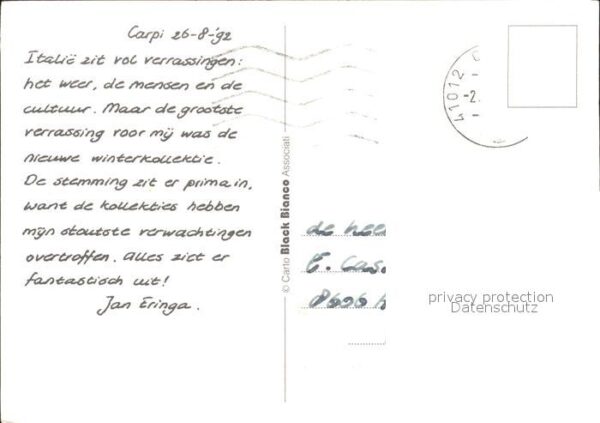 Carpi 26-8-'92
Italië zit vol verrassingen:
het weer, de mensen en de
cultuur. Maar de grootste
verrassing voor mij was de
nieuwe winterkollektie.
De stemming zit er prima in,
want de kollekties hebben
mijn stoutste verwachtingen
overtroffen. Alles ziet er
fantastisch uit!
Jan Eringa.
© Carto Black Bianco Associati
41012
-2.
de heer
E. Cas
privacy protection
Datenschutz